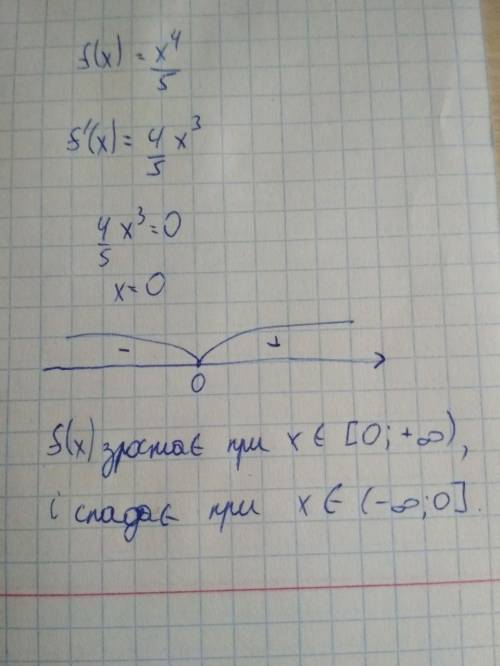 f(x) = x⁴/5
f'(x) = 4/5 x³
4/5 x³ = 0
x = 0
- +
0
f(x) зростає при x ∈ [0; +∞),
і спадає при x ∈ (-∞; 0].